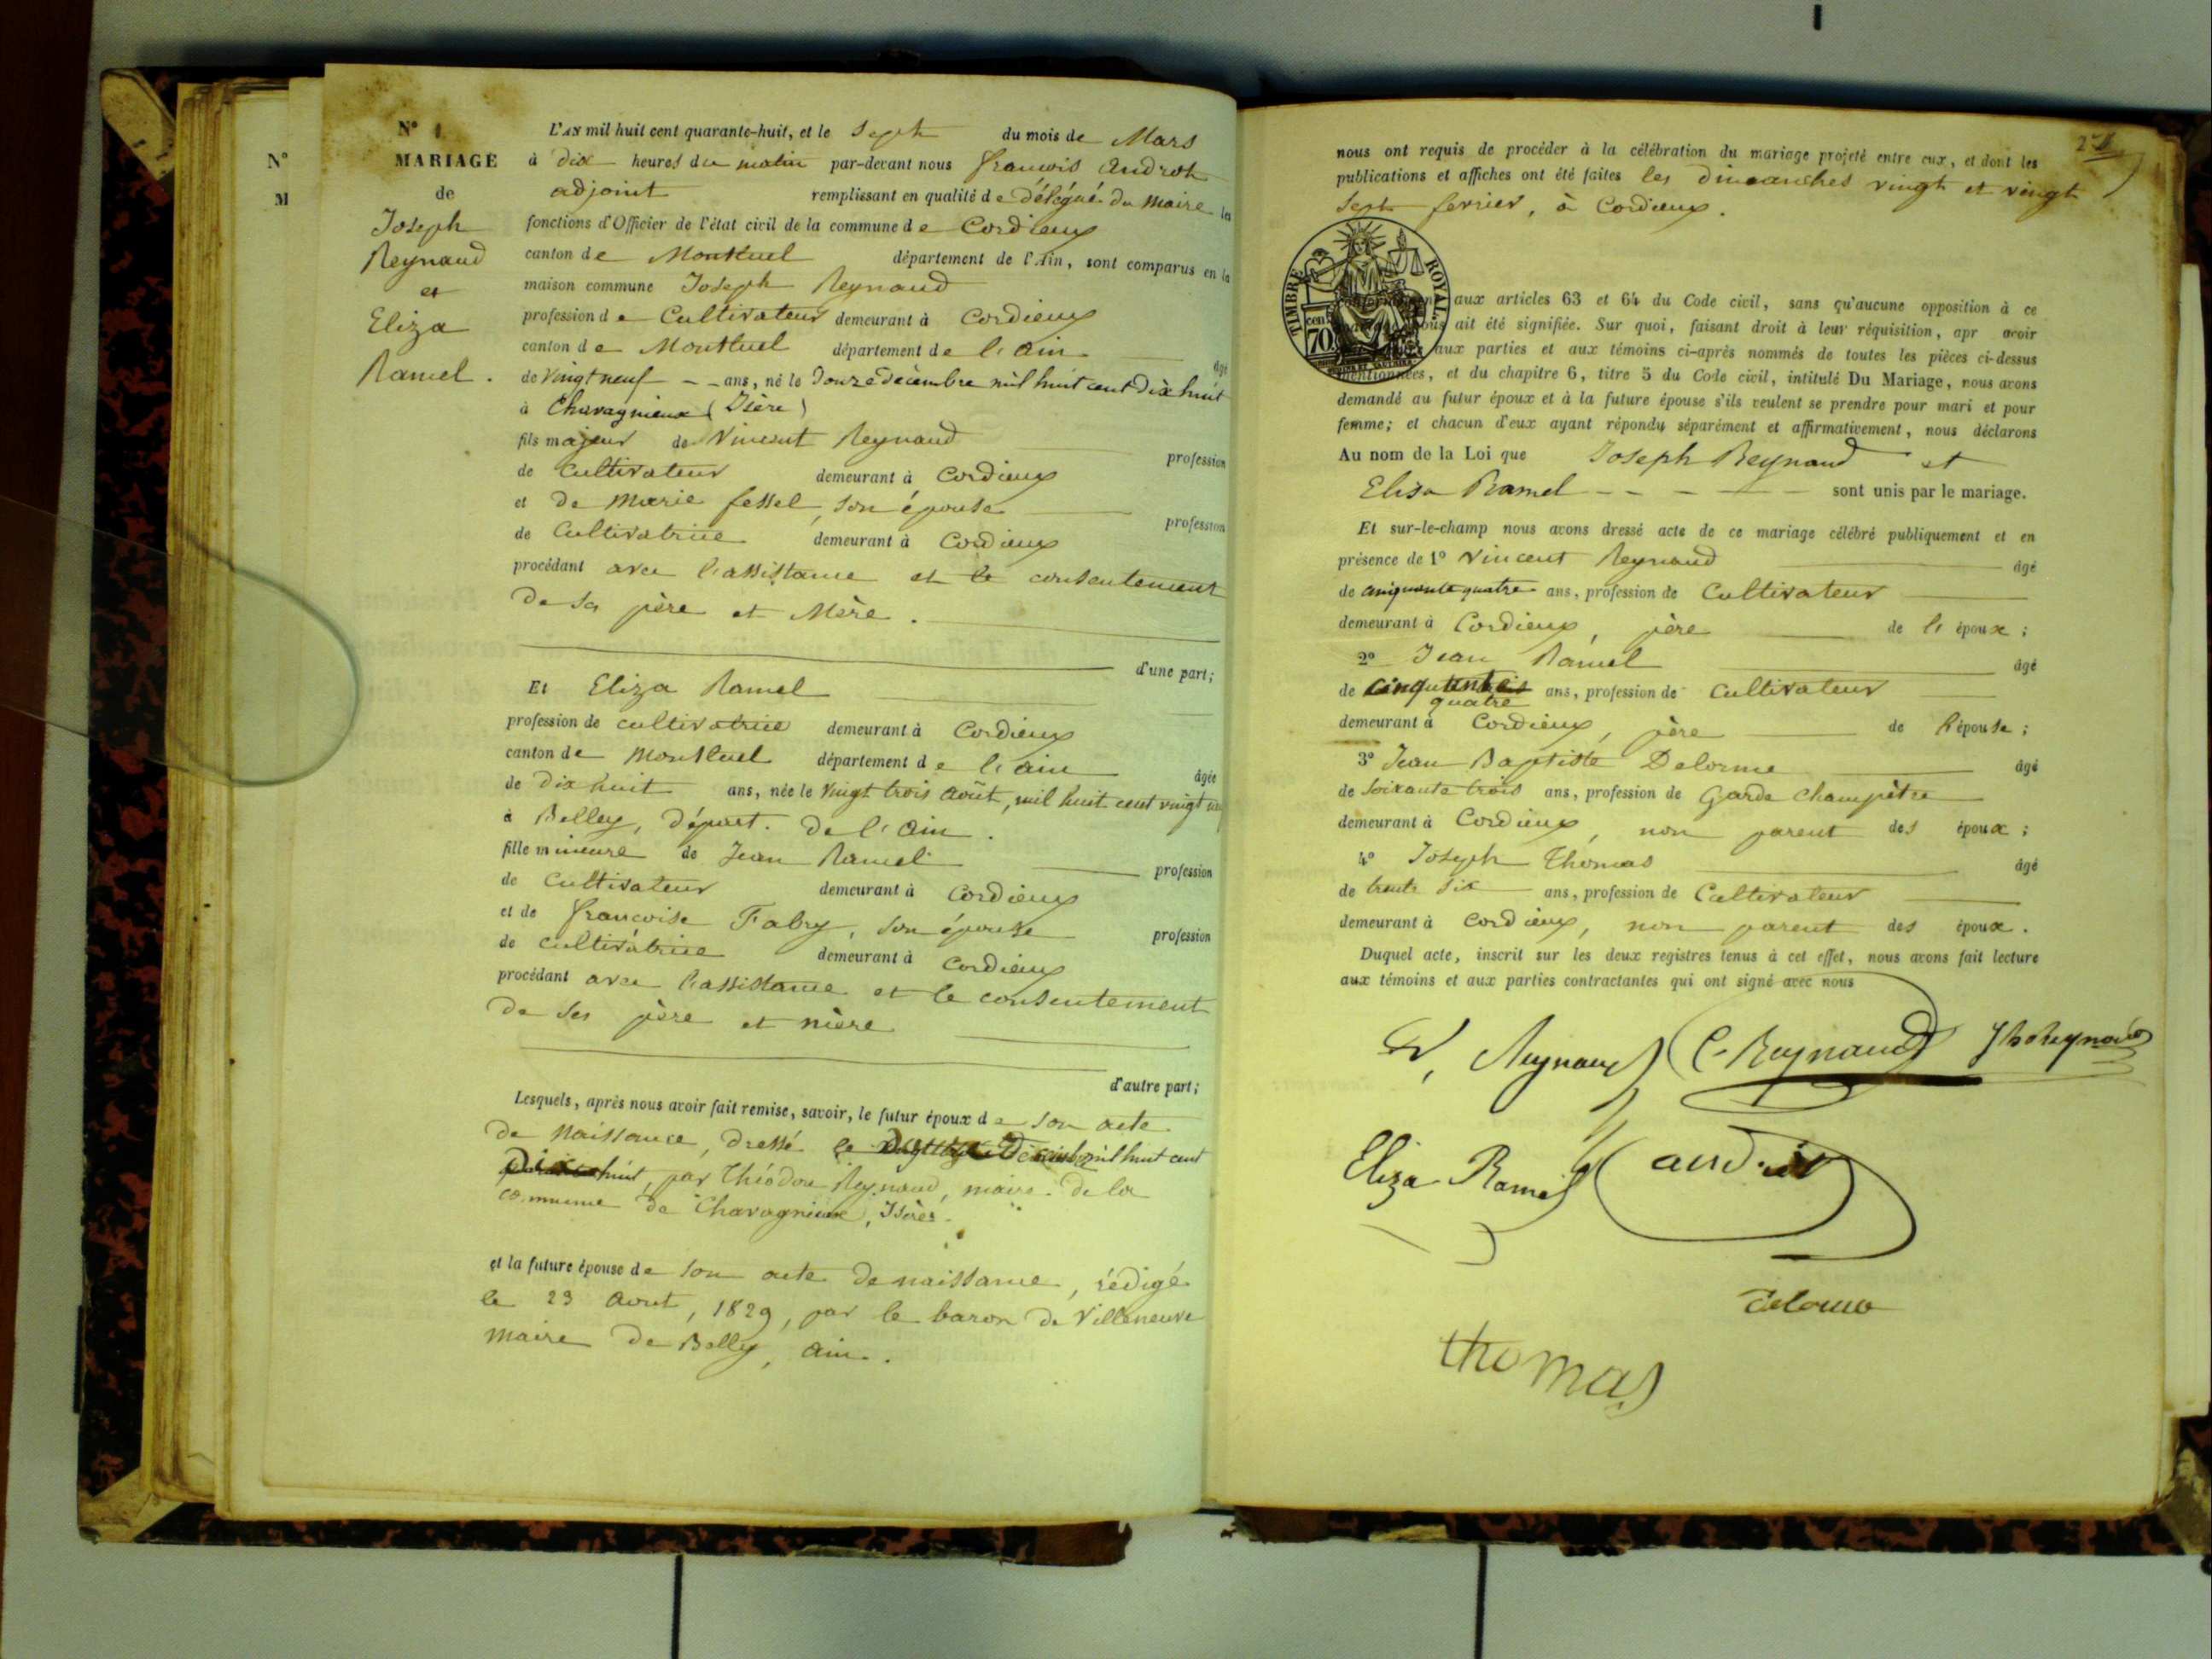 N°
M
N° 1
MARIAGE
de
Joseph
Reynaud
et
Eliza
Ramel.
L'AN mil huit cent quarante-huit, et le Sept du mois de Mars
à dix heures du matin par-devant nous françois Androt
adjoint remplissant en qualité de délégué du Maire les
fonctions d'Officier de l'état civil de la commune de Cordieux
canton de Montluel département de l'Ain, sont comparus en la
maison commune Joseph Reynaud
profession de Cultivateur demeurant à Cordieux
canton de Montluel département de l'ain âgé
de vingt neuf - - ans, né le Douze décembre mil huit cent Dix huit
à Chavagnieux (Isère)
fils majeur de Vincent Reynaud profession
de cultivateur demeurant à Cordieux
et de Marie fessel, son épouse profession
de Cultivatrice demeurant à Cordieux
procédant avec l'assistance et le consentement
de ses père et Mère.
d'une part;
Et Eliza Ramel
profession de cultivatrice demeurant à Cordieux
canton de Montluel département de l'ain âgée
de dix huit ans, née le vingt trois août, mil huit cent vingt
à Belley, Départ. de l'ain.
fille mineure de Jean Ramel profession
de Cultivateur demeurant à Cordieux
et de françoise Fabry, son épouse profession
de cultivatrice demeurant à Cordieux
procédant avec l'assistance et le consentement
de ses père et mère
d'autre part;
Lesquels, après nous avoir fait remise, savoir, le futur époux de son acte
de Naissance, dressé le Décembre mil huit cent
Dix huit, par Théodore Reynaud, maire de la
commune de Chavagnieux, Isère.
et la future épouse de son acte de naissance, rédigé
le 23 Aout, 1829, par le baron de Villeneuve
maire de Belley, ain.
nous ont requis de procéder à la célébration du mariage projeté entre eux, et dont les
publications et affiches ont été faites les dimanches vingt et vingt
Sept fevrier, à Cordieux.
TIMBRE ROYAL.
cent 70
aux articles 63 et 64 du Code civil, sans qu'aucune opposition à ce
nous ait été signifiée. Sur quoi, faisant droit à leur réquisition, apr avoir
aux parties et aux témoins ci-après nommés de toutes les pièces ci-dessus
mentionnées, et du chapitre 6, titre 5 du Code civil, intitulé Du Mariage, nous avons
demandé au futur époux et à la future épouse s'ils veulent se prendre pour mari et pour
femme; et chacun d'eux ayant répondu séparément et affirmativement, nous déclarons
Au nom de la Loi que Joseph Reynaud et
Elisa Ramel - - - sont unis par le mariage.
Et sur-le-champ nous avons dressé acte de ce mariage célébré publiquement et en
présence de 1° Vincent Reynaud âgé
de cinquante quatre ans, profession de Cultivateur
demeurant à Cordieux, père de l'époux;
2° Jean Ramel âgé
de cinquante quatre ans, profession de cultivateur
demeurant à Cordieux, père de l'épouse;
3° Jean Baptiste Delorme âgé
de soixante trois ans, profession de Garde champêtre
demeurant à Cordieux, non parent des époux;
4° Joseph Thomas âgé
de trente six ans, profession de Cultivateur
demeurant à Cordieux, non parent des époux.
Duquel acte, inscrit sur les deux registres tenus à cet effet, nous avons fait lecture
aux témoins et aux parties contractantes qui ont signé avec nous
V, Reynaud C. Reynaud Jh Reynaud
Eliza Ramel androt
Delorme
thomas